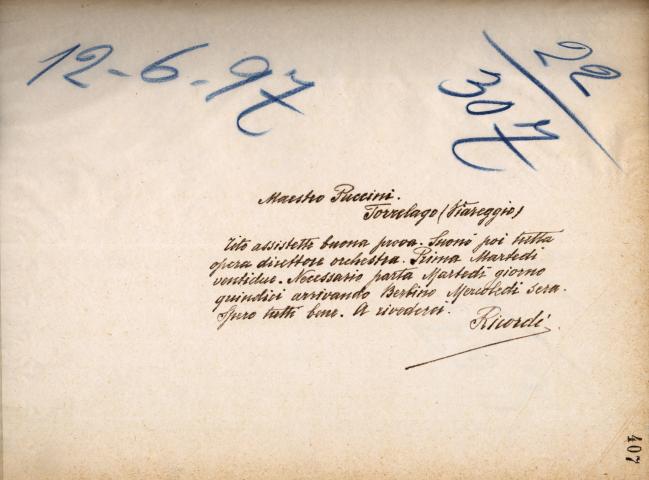 12-6-97
22/307
Maestro Puccini.
Torrelago (Viareggio)
Tito assistette buona prova. Suonò poi tutta
opera direttore orchestra. Prima Martedi
ventidue. Necessario parta Martedi giorno
quindici arrivando Berlino Mercoledi sera.
Spero tutti bene. A rivederci.
Ricordi
407